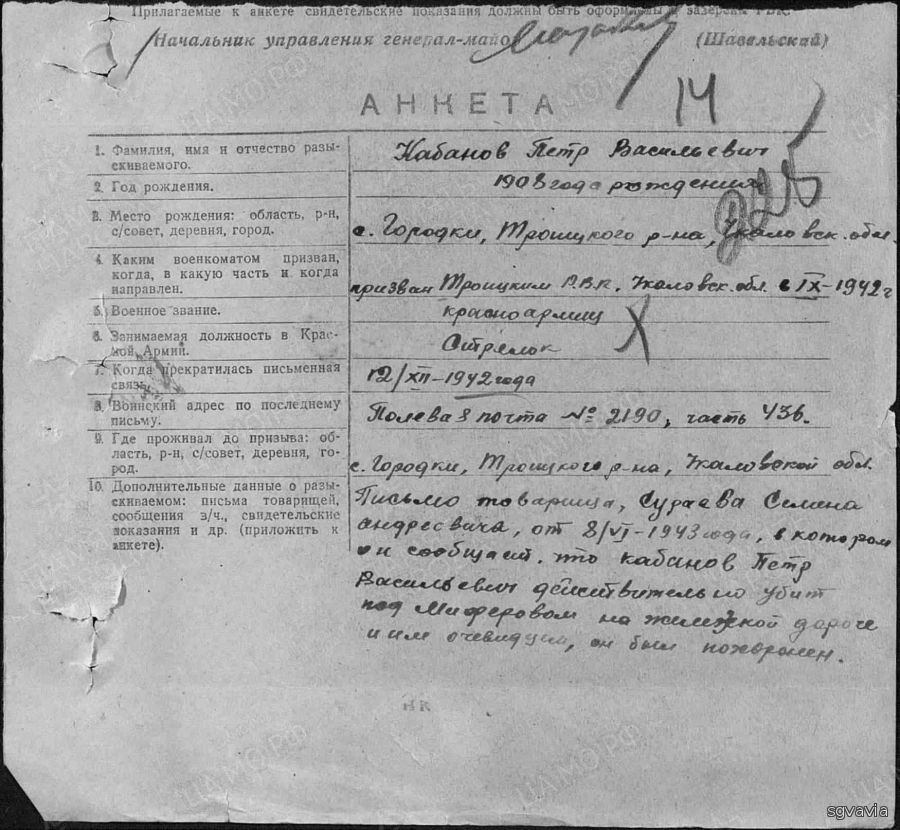 Прилагаемые к анкете свидетельские показания должны быть оформлены и заверены РВК.
Начальник управления генерал-майор (Шавельский)
14
АНКЕТА
1. Фамилия, имя и отчество разы-
скиваемого.
Кабанов Петр Васильевич
2. Год рождения.
1908 года рождения
3. Место рождения: область, р-н,
с/совет, деревня, город.
с. Городки, Троицкого р-на, Чкаловск. обл.
4. Каким военкоматом призван,
когда, в какую часть и когда
направлен.
призван Троицким Р.В.К. Чкаловск. обл. в IX-1942 г
5. Военное звание.
красноармиц
6. Занимаемая должность в Крас-
ной Армии.
Стрелок
7. Когда прекратилась письменная
связь.
12/XII-1942 года
8. Воинский адрес по последнему
письму.
Полевая почта № 2190, часть 436.
9. Где проживал до призыва: об-
ласть, р-н, с/совет, деревня, го-
род.
с. Городки, Троицкого р-на, Чкаловской обл.
10. Дополнительные данные о разы-
скиваемом: письма товарищей,
сообщения в/ч., свидетельские
показания и др. (приложить к
анкете).
Письмо товарища, Сураева Семина
Андреевича, от 8/VI-1943 года, в котором
он сообщает, что Кабанов Петр
Васильевич действительно убит
под Мифировом на железной дароге
и им очевидцем, он был похоронен.
ЦАМО.РФ
sgvavia